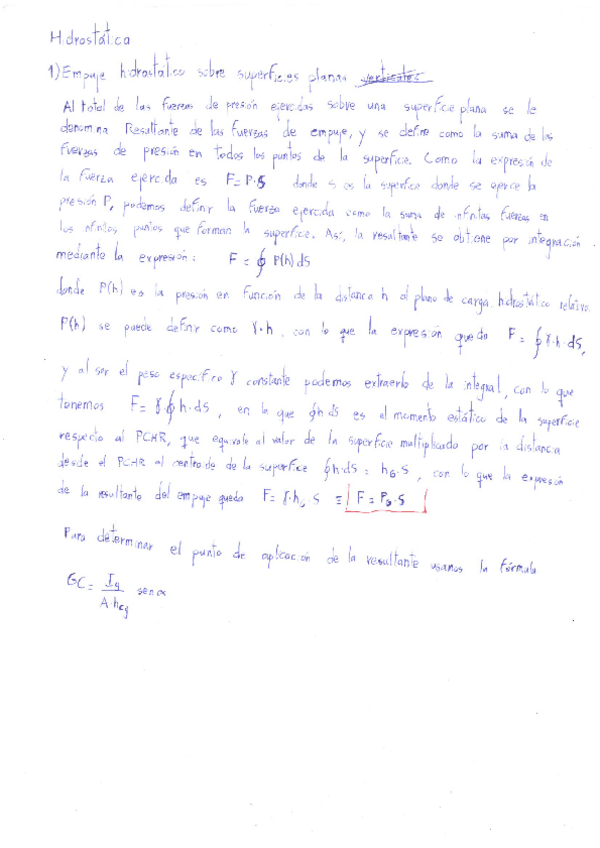 Hidrostática
1) Empuje hidrostático sobre superficies planas verticales
Al total de las fuerzas de presión ejercidas sobre una superficie plana se le
denomina Resultante de las fuerzas de empuje, y se define como la suma de las
fuerzas de presión en todos los puntos de la superficie. Como la expresión de
la fuerza ejercida es F=P·S donde S es la superficie donde se ejerce la
presión P, podemos definir la fuerza ejercida como la suma de infinitas fuerzas en
los infinitos puntos que forman la superficie. Así, la resultante se obtiene por integración
mediante la expresión: F = ∮ P(h) dS
donde P(h) es la presión en función de la distancia h al plano de carga hidrostático relativo.
P(h) se puede definir como γ·h, con lo que la expresión queda F = ∮ γ·h·dS,
y al ser el peso específico γ constante podemos extraerlo de la integral, con lo que
tenemos F = γ·∮ h·dS, en la que ∮h dS es el momento estático de la superficie
respecto al PCHR, que equivale al valor de la superficie multiplicado por la distancia
desde el PCHR al centro de de la superficie ∮h·dS = hG·S, con lo que la expresión
de la resultante del empuje queda F = γ·hG·S ≡ F = PG·S
Para determinar el punto de aplicación de la resultante usamos la fórmula
GC = Ig / A·hcg sen α